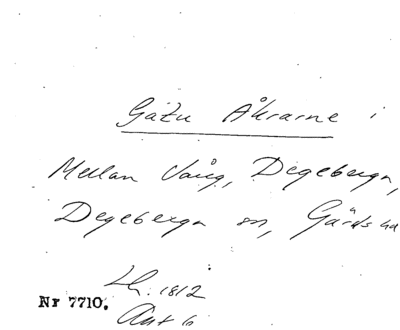 Gatu Åkrarne i
Mellan Vång, Degeberga,
Degeberga sn, Gärds hd
Lh. 1812
Nr 7710.
Akt 6